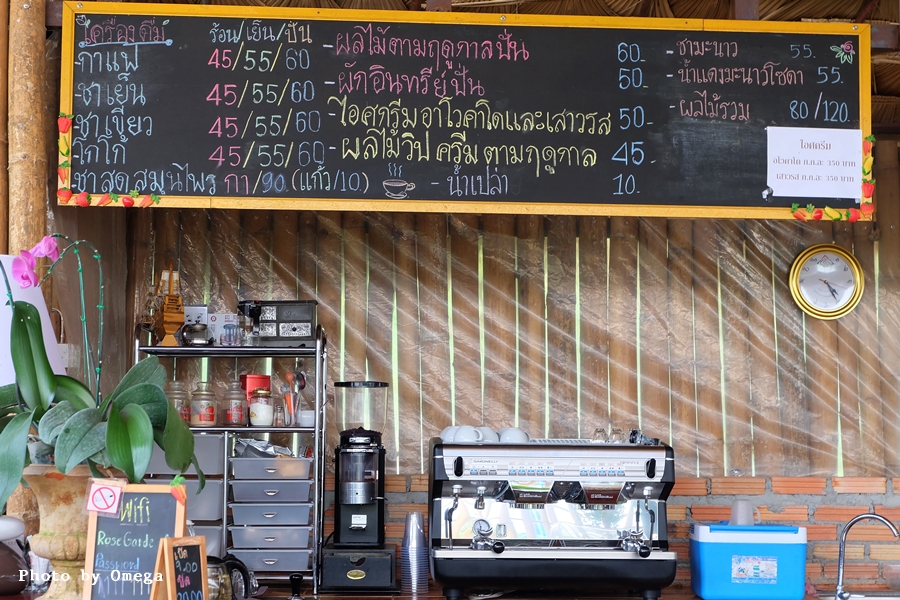 เครื่องดื่ม ร้อน/เย็น/ปั่น
กาแฟ 45/55/60
-ชาเย็น 45/55/60
-ชาเขียว 45/55/60
-โกโก้ 45/55/60
-ชาสดสมุนไพร กา/90.(แก้ว/10.)
-ผลไม้ตามฤดูกาลปั่น 60.-
-ผักอินทรีย์ปั่น 50.-
-ไอศกรีมอาโวคาโดและเสาวรส 50.-
-ผลไม้วิปครีมตามฤดูกาล 45.-
-น้ำเปล่า 10.-
-ชามะนาว 55.
-น้ำแดงมะนาวโซดา 55.
-ผลไม้รวม 80/120
ไอศครีม
อโวคาโด ก.ก.ละ 350 บาท
เสาวรส ก.ก.ละ 350 บาท
Wifi
Rose Garde
Password
เปิด
9.00
ปิด
Photo by Omega